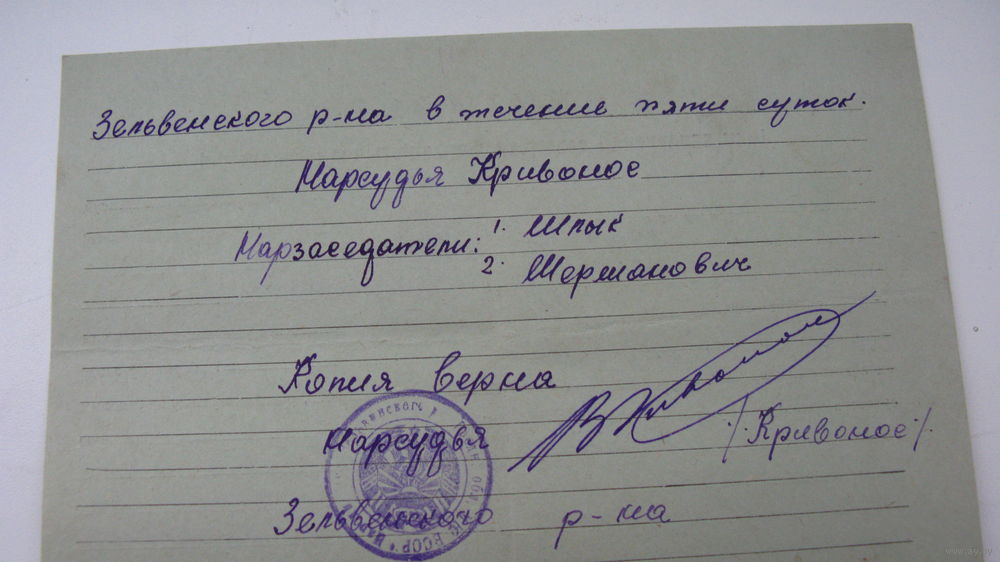 Зельвенского р-на в течение пяти суток.
Нарсудья Кривонос
Нарзаседатели: 1. Шпык
2. Шерманович
Копия верна
Нарсудья /Кривонос/.
Зельвенского р-на
БССР
www.ay.by